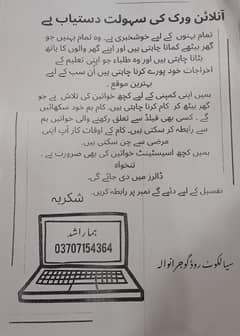 آنلائن ورک کی سہولت دستیاب ہے
تمام بہنوں کے لیے خوشخبری ہے۔ وہ تمام بہنیں جو
گھر بیٹھے کمانا چاہتی ہیں اور اپنے گھر والوں کا ہاتھ
بٹانا چاہتی ہیں اور وہ طلباء جو اپنی تعلیم کے
اخراجات خود پورے کرنا چاہتی ہیں ان سب کے لیے
بہترین موقع۔
ہمیں اپنی کمپنی کے لیے کچھ خواتین کی تلاش ہے جو
گھر بیٹھ کر کام کرنا چاہتی ہیں۔ کام ہم خود سکھائیں
گے۔ کسی بھی فیلڈ سے تعلق رکھنے والی خواتین ہم
سے رابطہ کر سکتی ہیں۔ کام کے اوقات کار آپ اپنی
مرضی سے چن سکتی ہیں۔
ہمیں کچھ اسیسٹینٹ خواتین کی بھی ضرورت ہے۔
تنخواہ
ڈالرز میں دی جائے گی۔
تفسیل کے لیے دئیے گے نمبر پر رابطہ کریں۔
شکریہ
ہما راشد
03707154364
سیالکوٹ روڈ گوجرانوالہ